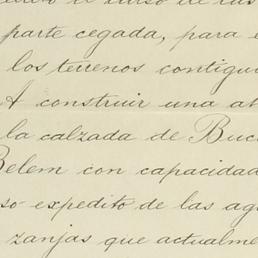 el curso de las
parte cegada, para e
los terrenos contigu
A construir una at
la calzada de Buc
Belem con capacidad
so expedito de las ag
zanjas que actualme